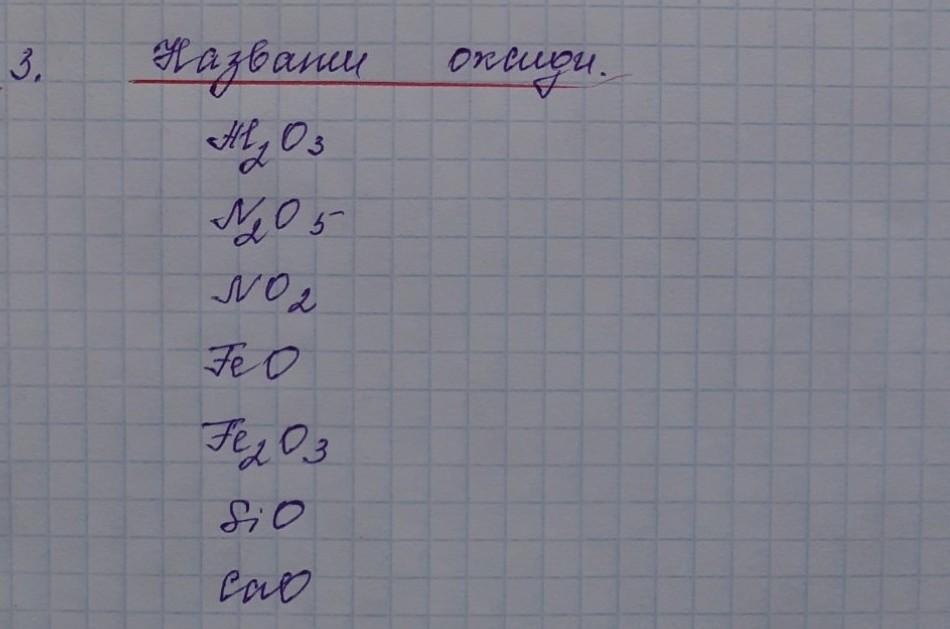 3. Назвати оксиди.
Al₂O₃
N₂O₅
NO₂
FeO
Fe₂O₃
SiO
CaO